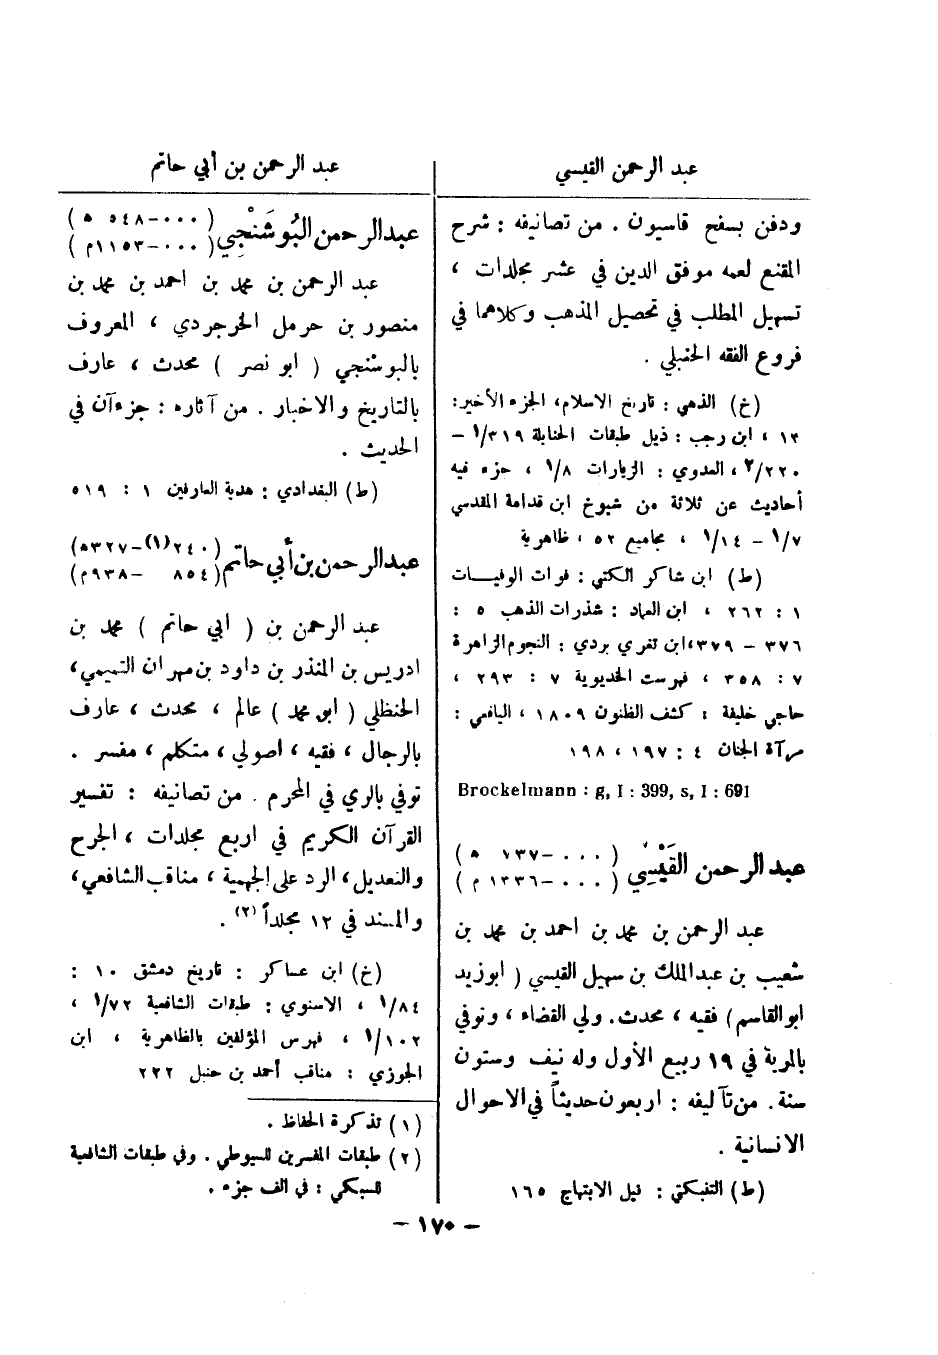 عبد الرحمن القيسي
ودفن بسفح قاسيون . من تصانيفه : شرح
المقنع لعمه موفق الدين في عشر مجلدات ،
تسهيل المطلب في تحصيل المذهب وكلاهما في
فروع الفقه الحنبلي .
(خ) الذهبي : تاريخ الاسلام، الجزء الأخير:
١٣ ، ابن رجب : ذيل طبقات الحنابلة ١/٣١٩ –
٢/٢٢٠ ، العدوي : الزيارات ١/٨ ، جزء فيه
أحاديث عن ثلاثة من شيوخ ابن قدامة المقدسي
١/٧ – ١/١٤ ، مجاميع ٥٢ ، ظاهرية
(ط) ابن شاكر الكتبي : فوات الوفيات
١ : ٢٦٢ ، ابن العماد : شذرات الذهب ٥ :
٣٧٦ – ٣٧٩، ابن تغري بردي : النجوم الزاهرة
٧ : ٣٥٨ ، فهرست الخديوية ٧ : ٢٩٣ ،
حاجي خليفة : كشف الظنون ١٨٠٩ ، اليافعي :
مرآة الجنان ٤ : ١٩٧ ، ١٩٨
Brockelmann : g, I : 399, s, I : 691
عبد الرحمن القَيْسِي ( ٠٠٠ – ١٣٧ ه )
( ٠٠٠ – ١٣٣٦ م )
عبد الرحمن بن محمد بن احمد بن محمد بن
شعيب بن عبد الملك بن سهيل القيسي ( ابو زيد
ابو القاسم ) فقيه ، محدث. ولي القضاء ، وتوفي
بالمرية في ١٩ ربيع الأول وله نيف وستون
سنة . من تآليفه : اربعون حديثاً في الاحوال
الانسانية .
(ط) التنبكتي : نيل الابتهاج ١٦٥
عبد الرحمن بن أبي حاتم
عبد الرحمن البُوشَنْجِي ( ٠٠٠ – ٥٤٨ ه )
( ٠٠٠ – ١١٥٣م )
عبد الرحمن بن محمد بن احمد بن محمد بن
منصور بن حرمل الخرجردي ، المعروف
بالبوشنجي ( ابو نصر ) محدث ، عارف
بالتاريخ والاخبار . من آثاره : جزءآن في
الحديث .
(ط) البغدادي : هدية العارفين ١ : ٥١٩
عبد الرحمن بن أبي حاتم (٢٤٠(١) – ٣٢٧ه)
( ٨٥٤ – ٩٣٨م)
عبد الرحمن بن ( ابي حاتم ) محمد بن
ادريس بن المنذر بن داود بن مهران التميمي،
الحنظلي ( ابو محمد ) عالم ، محدث ، عارف
بالرجال ، فقيه ، اصولي ، متكلم ، مفسر .
توفي بالري في المحرم . من تصانيفه : تفسير
القرآن الكريم في اربع مجلدات ، الجرح
والتعديل، الرد على الجهمية ، مناقب الشافعي،
والمسند في ١٢ مجلداً (٢) .
(خ) ابن عساكر : تاريخ دمشق ١٠ :
١/٨٤ ، الاسنوي : طبقات الشافعية ١/٧٢ ،
١/١٠٢ ، فهرس المؤلفين بالظاهرية ، ابن
الجوزي : مناقب أحمد بن حنبل ٢٢٢
(١) تذكرة الحفاظ .
(٢) طبقات المفسرين للسيوطي . وفي طبقات الشافعية
للسبكي : في الف جزء .
– ١٧٠ –